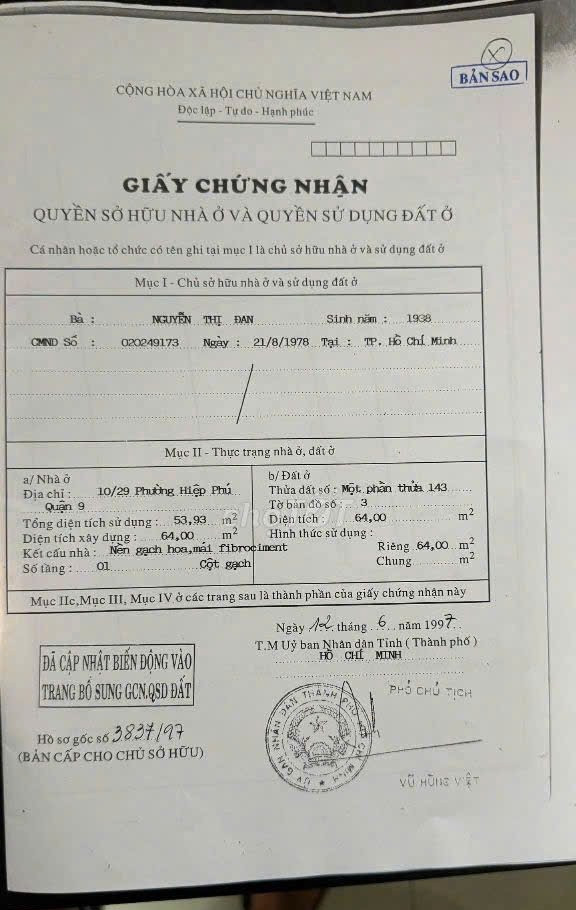 BẢN SAO
CỘNG HÒA XÃ HỘI CHỦ NGHĨA VIỆT NAM
Độc lập - Tự do - Hạnh phúc
GIẤY CHỨNG NHẬN
QUYỀN SỞ HỮU NHÀ Ở VÀ QUYỀN SỬ DỤNG ĐẤT Ở
Cá nhân hoặc tổ chức có tên ghi tại mục I là chủ sở hữu nhà ở và sử dụng đất ở
Mục I - Chủ sở hữu nhà ở và sử dụng đất ở
Bà : NGUYỄN THỊ ĐAN Sinh năm : 1938
CMND Số : 020249173 Ngày : 21/8/1978 Tại : TP. Hồ Chí Minh
Mục II - Thực trạng nhà ở, đất ở
a/ Nhà ở
Địa chỉ : 10/29 Phường Hiệp Phú
Quận 9
Tổng diện tích sử dụng : 53,93 m2
Diện tích xây dựng : 64,00 m2
Kết cấu nhà : Nền gạch hoa, mái fibrociment
Số tầng : 01 Cột gạch
b/ Đất ở
Thửa đất số : Một phần thửa 143
Tờ bản đồ số : 3
Diện tích : 64,00 m2
Hình thức sử dụng :
Riêng 64,00 m2
Chung m2
Mục IIc, Mục III, Mục IV ở các trang sau là thành phần của giấy chứng nhận này
Ngày 12 tháng 6 năm 1997
T.M Uỷ ban Nhân dân Tỉnh ( Thành phố )
HỒ CHÍ MINH
PHÓ CHỦ TỊCH
ĐÃ CẬP NHẬT BIẾN ĐỘNG VÀO
TRANG BỔ SUNG GCN.QSD ĐẤT
Hồ sơ gốc số 3837/97
(BẢN CẤP CHO CHỦ SỞ HỮU)
ỦY BAN NHÂN DÂN THÀNH PHỐ HỒ CHÍ MINH
VŨ HÙNG VIỆT